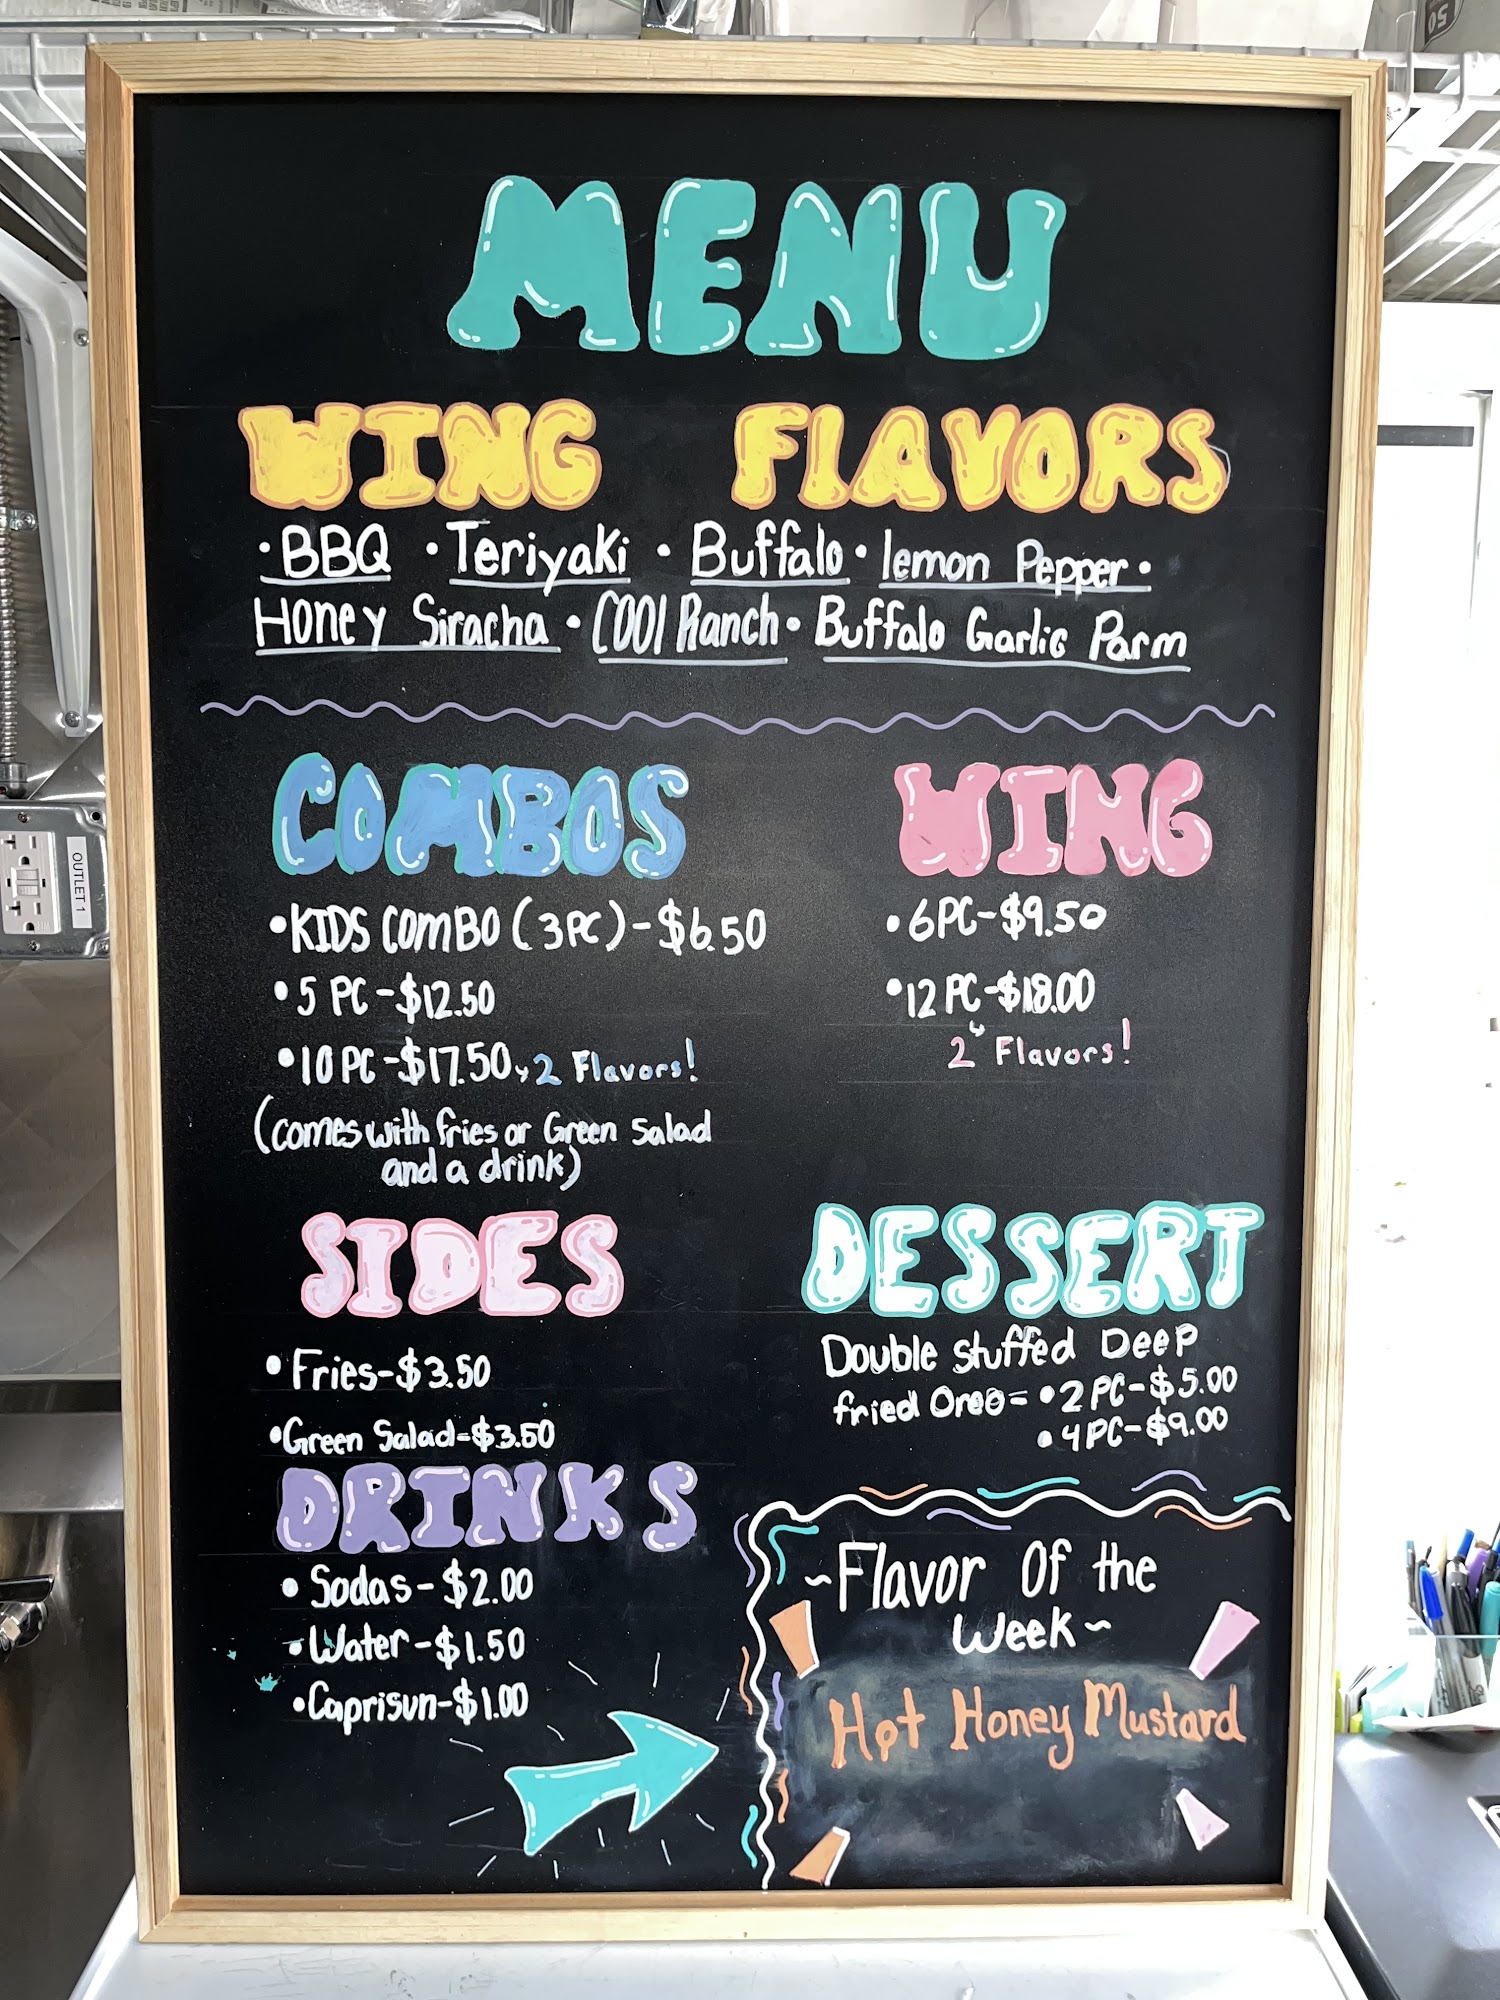 MENU
WING FLAVORS
• BBQ • Teriyaki • Buffalo • lemon Pepper •
Honey Siracha • COOl Ranch • Buffalo Garlic Parm
COMBOS
• KIDS COMBO (3PC) - $6.50
• 5 PC - $12.50
• 10 PC - $17.50 2 Flavors!
(comes with fries or Green Salad
and a drink)
WING
• 6PC - $9.50
• 12 PC - $18.00
2 Flavors!
SIDES
• Fries - $3.50
• Green Salad - $3.50
DESSERT
Double stuffed Deep
fried Oreo = • 2 PC - $5.00
• 4 PC - $9.00
DRINKS
• Sodas - $2.00
• Water - $1.50
• Caprisun - $1.00
~Flavor Of the
Week~
Hot Honey Mustard
OUTLET 1
50